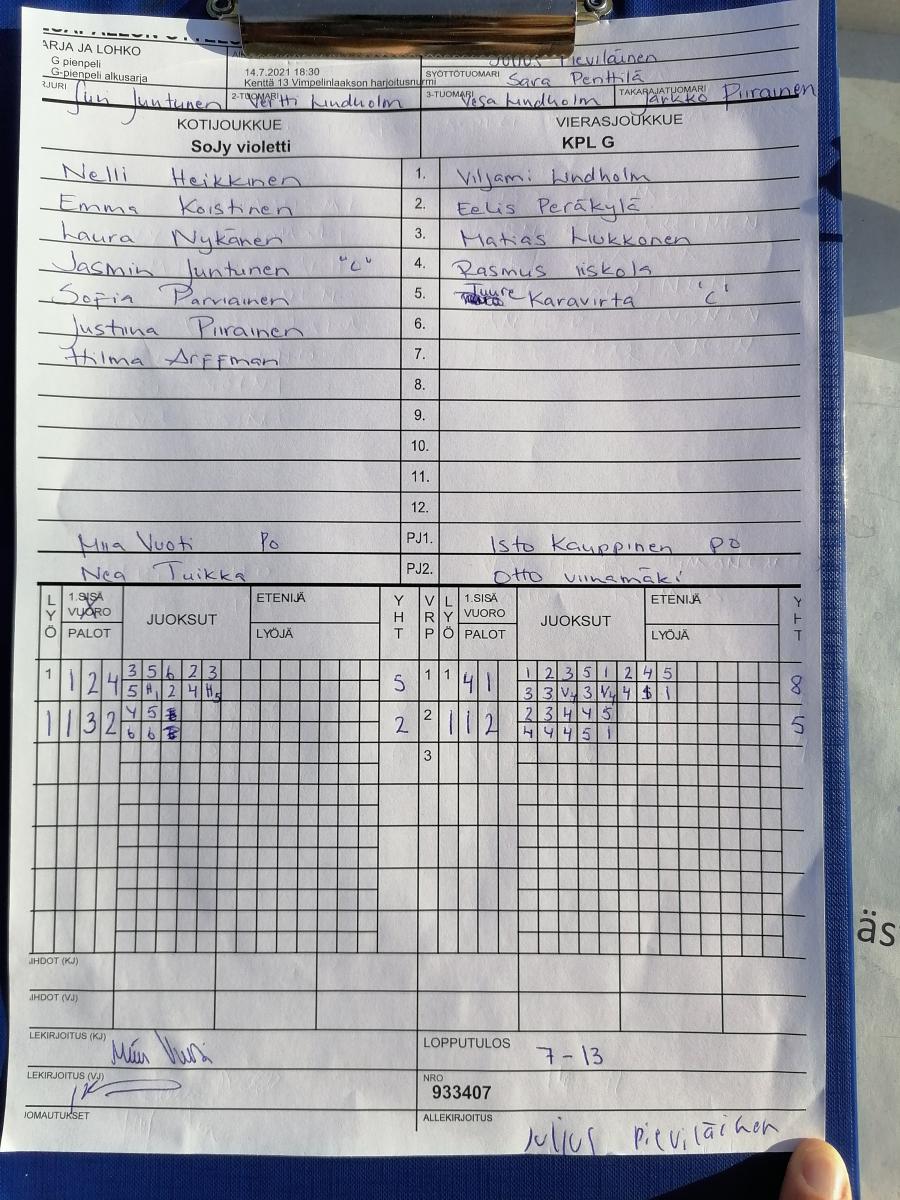 ARJA JA LOHKO
G pienpeli
G-pienpeli alkusarja
14.7.2021 18:30
Kenttä 13 Vimpelinlaakson harjoitusnurmi
Julius Pieviläinen
SYÖTTÖTUOMARI Sara Penttilä
Juntunen 2-TUOMARI Vertti Lindholm 3-TUOMARI Vesa Lindholm TAKARAJATUOMARI Jarkko Piirainen
KOTIJOUKKUE VIERASJOUKKUE
SoJy violetti KPL G
Nelli Heikkinen 1. Viljami Lindholm
Emma Koistinen 2. Eelis Peräkylä
Laura Nykänen 3. Matias Liukkonen
Jasmin Juntunen "C" 4. Rasmus Iiskola
Sofia Parviainen 5. Tuure Karavirta "C"
Justiina Piirainen 6.
Hilma Arffman 7.
8.
9.
10.
11.
12.
Miia Vuoti Po PJ1. Isto Kauppinen PO
Nea Tuikka PJ2. Otto Viinamäki
LYÖ 1.SISÄ VUORO PALOT JUOKSUT ETENIJÄ LYÖJÄ YHT VRP LYÖ 1.SISÄ VUORO PALOT JUOKSUT ETENIJÄ LYÖJÄ YHT
1 1 2 4 3 5 6 2 3 5 1 1 4 1 1 2 3 5 1 2 4 5 8
5 H1 2 4 H5 3 3 V4 3 V4 4 1
1 1 3 2 4 5 2 2 1 1 2 2 3 4 4 5 5
6 6 4 4 4 5 1
3
JHDOT (KJ)
JHDOT (VJ)
LEKIRJOITUS (KJ) LOPPUTULOS 7-13
LEKIRJOITUS (VJ) NRO 933407
IOMAUTUKSET ALLEKIRJOITUS Julius Pieviläinen
äs